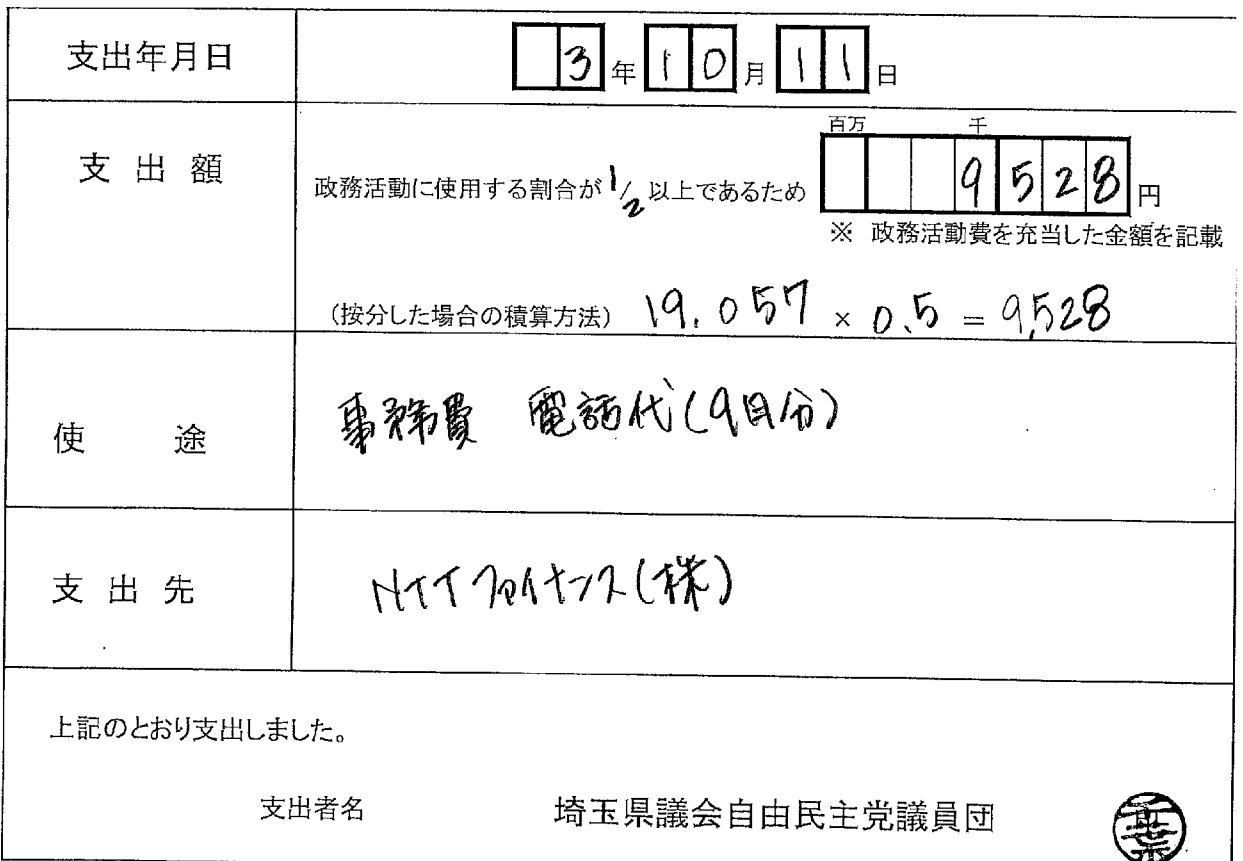 支出年月日 3年10月11日
百万 千
支出額 政務活動に使用する割合が1/2以上であるため 9528円
※ 政務活動費を充当した金額を記載
(按分した場合の積算方法) 19.057 × 0.5 = 9,528
使途 事務費 電話代(9月分)
支出先 NTTファイナンス(株)
上記のとおり支出しました。
支出者名 埼玉県議会自由民主党議員団 千葉